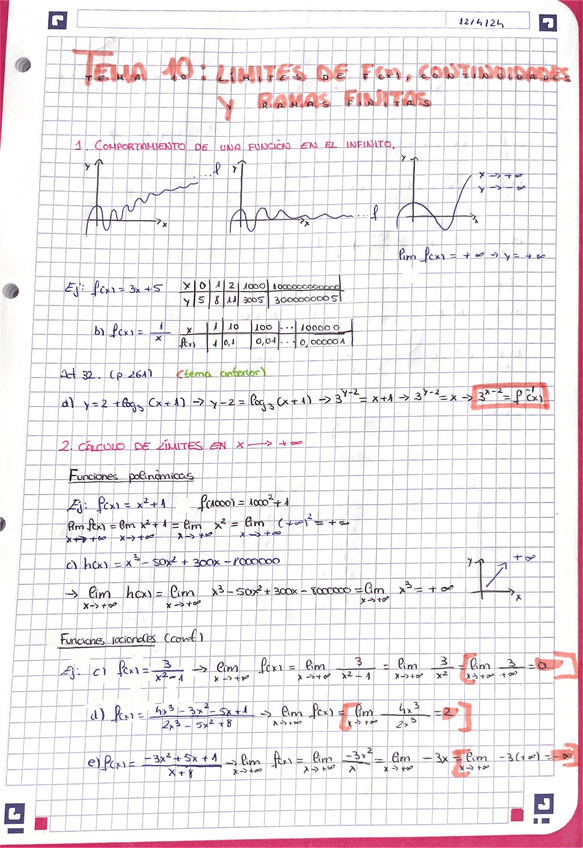 12/4/24
TEMA 10: LÍMITES DE F(x), CONTINUIDADES
Y RAMAS FINITAS
1. COMPORTAMIENTO DE UNA FUNCIÓN EN EL INFINITO.
y x f
y x f
y x x → +∞
y → -∞
lim f(x) = +∞ → y = +∞
Ej: f(x) = 3x + 5 x | 0 | 1 | 2 | 1000 |
y | 5 | 8 | 11 | 3005 | 300000000005
b) f(x) = 1/x x | 1 | 10 | 100 | ... | 100000
f(x) | 1 | 0,1 | 0,01 | ... | 0,000001
32. (p 261) (tema anterior)
d) y = 2 + log₃ (x+1) → y-2 = log₃ (x+1) → 3^(y-2) = x+1 → 3^(y-2) = x → 3^(x-2) = f⁻¹(x)
2. CÁLCULO DE LÍMITES EN x → +∞
Funciones polinómicas
Ej: f(x) = x² + 1 f(1000) = 1000² + 1
lim f(x) = lim x² + 1 = lim x² = lim (+∞)² = +∞
x→+∞ x→+∞ x→+∞ x→+∞
c) h(x) = x³ - 50x² + 300x - 800000
→ lim h(x) = lim x³ - 50x² + 300x - 800000 = lim x³ = +∞
x→+∞ x→+∞ x→+∞
y +∞ x
Funciones racionales (cont)
Ej: c) f(x) = 3/(x²-1) → lim f(x) = lim 3/(x²-1) = lim 3/x² = lim 3/+∞ = 0
x→+∞ x→+∞ x→+∞ x→+∞
d) f(x) = (4x³ - 3x² - 5x + 1)/(2x³ - 5x² + 8) → lim f(x) = lim 4x³/2x³ = 2
x→+∞ x→+∞
e) f(x) = (-3x² + 5x + 1)/(x + 8) → lim f(x) = lim -3x²/x = lim -3x = lim -3(+∞) = -∞
x→+∞ x→+∞ x→+∞ x→+∞